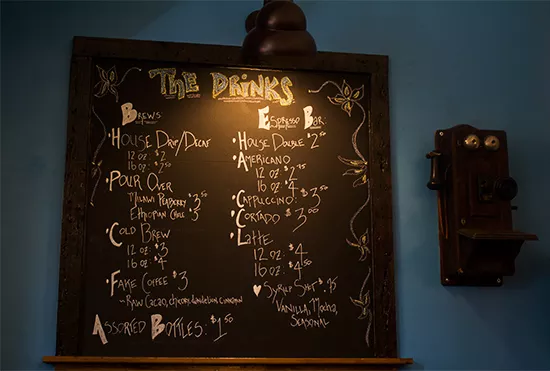 The Drinks
Brews
House Drip/Decaf
12 oz: $2
16 oz: $2.50
Pour Over
Malawi Peaberry $3.50
Ethiopian Chele $3
Cold Brew
12 oz: $3
16 oz: $4
Fake Coffee $3
Raw Cacao, chicory, dandelion, cinnamon
Assorted Bottles: $1.50
Espresso Bar:
House Double $2.50
Americano
12 oz $2.75
16 oz $4
Cappuccino: $3.50
Cortado $3.00
Latte
12 oz: $4
16 oz: $4.50
Syrup Shot $.75
Vanilla, Mocha,
Seasonal